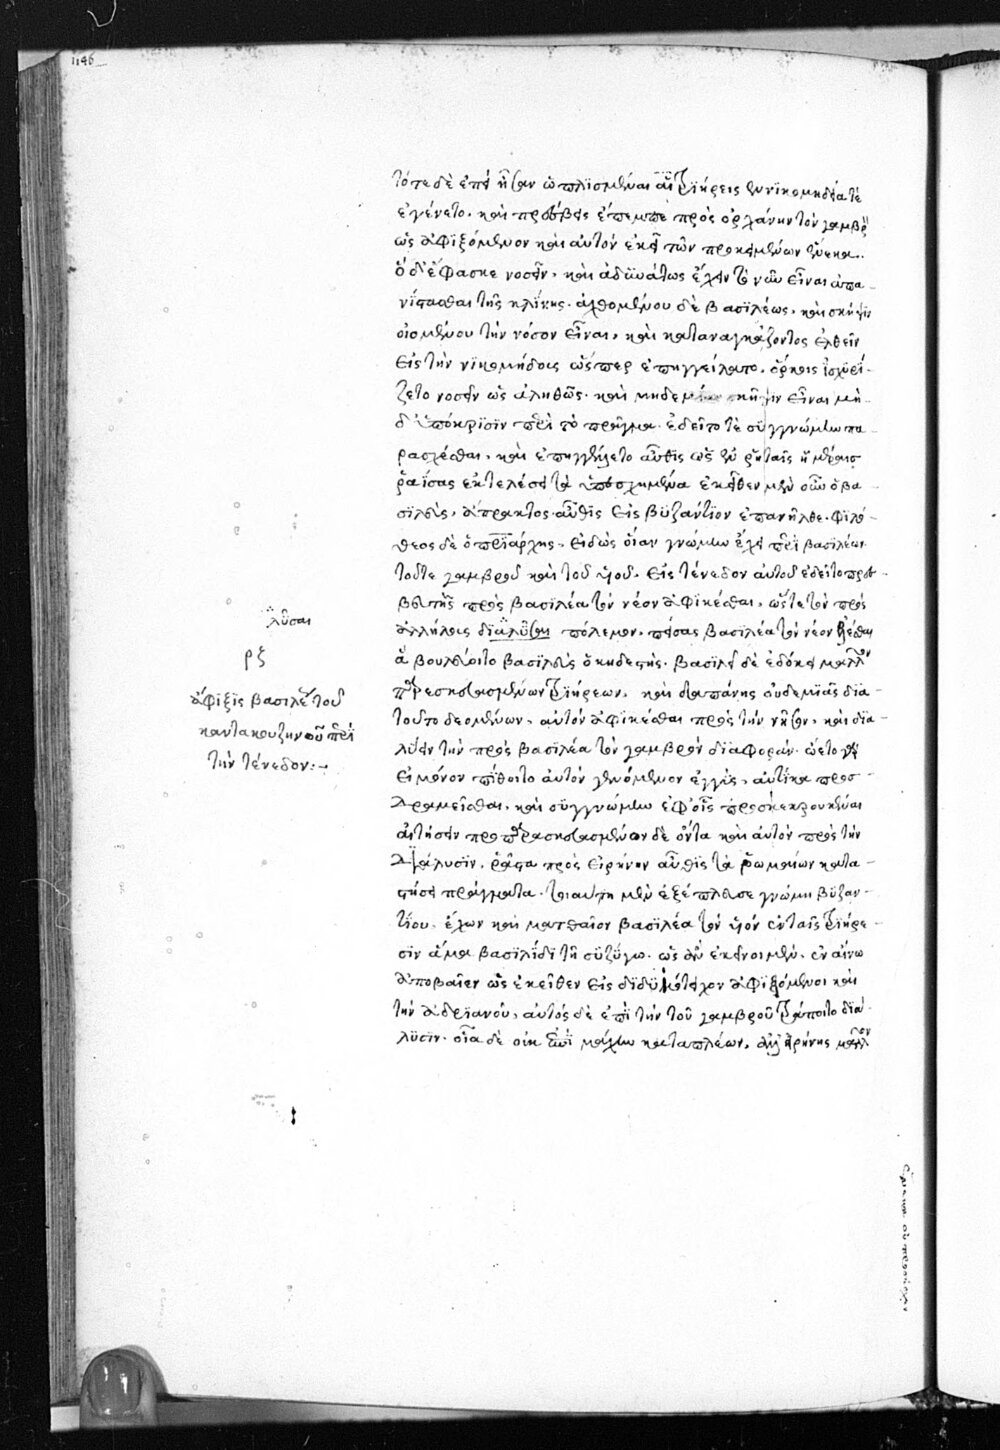 1146
τότε δὲ ἐπεὶ ἦσαν ὡπλϊσμέναι αἱ τριήρεις ἐν νϊκομηδεία τὲ
ἐγένετο. καὶ πρέσβεις ἔπεμπε πρὸς ὀρχάνην τὸν γαμβρὸν
ὡς ἀφϊξόμενον καὶ αὐτὸν ἐκεῖ τῶν προκειμένων ἕνεκα.
ὁ δ' ἔφασκε νοσεῖν, καὶ ἀδϋνάτως ἔχειν τὸ νῦν εἶναι ἀπα-
νίστασθαι τῆς κλΐνης. ἀχθομένου δὲ βασϊλέως, καὶ σκῆψϊν
οἰομένου τὴν νόσον εἶναι, καὶ καταναγκάζοντος ἐλθεῖν
εἰς τὴν νϊκομήδους ὥσπερ ἐπηγγείλατο. ὅρκοις ἰσχϋρί-
ζετο νοσεῖν ὡς ἀληθῶς. καὶ μηδεμίαν σκῆψιν εἶναι μη-
δ' ὑπόκρϊσϊν περὶ τὸ πρᾶγμα. ἐδεῖτο τὲ σϋγγνώμην πα-
ρασχέσθαι, καὶ ἐπηγγέλλετο αὖθϊς ὡς ἐν ῥηταῖς ἡμέραις
ῥαΐσας ἐκτελέσει τὰ ὑπεσχημένα ἐκεῖθεν μὲν οὖν ὁ βα-
σϊλεὺς, ἄπρακτος αὖθϊς εἰς βϋζάντϊον ἐπανῆλθε. φϊλό-
θεος δὲ ὁ πατριάρχης, εἰδὼς οἵαν γνώμην ἔχει περὶ βασϊλέως
τοῦτε γαμβροῦ καὶ τοῦ υἱοῦ. εἰς τένεδον αὐτοῦ ἐδεῖτο πρεσ-
βευτὴς πρὸς βασϊλέα τὸν νέον ἀφϊκέσθαι, ὥστε τὸν πρὸς
ἀλλήλους δϊαλῦσαι πόλεμον, πείσας βασϊλέα τὸν νέον δέχεσθαι
ἃ βούλοιτο βασϊλεὺς ὁ κηδεστής. βασϊλεῖ δὲ ἐδόκει μᾶλλον
παρεσκευασμένων τριήρεων, καὶ δαπάνης οὐδεμϊᾶς δϊὰ
τοῦτο δεομένων, αὐτὸν ἀφϊκέσθαι πρὸς τὴν νῆσον, καὶ δϊα-
λύειν τὴν πρὸς βασϊλέα τὸν γαμβρὸν δϊαφοράν. ᾤετο γὰρ
εἰ μόνον πύθοιτο αὐτὸν γενόμενον ἐγγὺς, αὐτίκα προσ-
δραμεῖσθαι, καὶ σϋγγνώμην ἐφ' οἷς προσκεκρουκέναι
αἰτήσειν προπαρασκευασμένον δὲ ὄντα καὶ αὐτὸν πρὸς τὴν
δϊάλυσϊν, ῥᾷστα πρὸς εἰρήνην αὖθϊς τὰ ῥωμαίων κατα-
στήσει πράγματα. τοιαύτη μὲν ἐξέπλευσε γνώμη βϋζαν-
τΐου. ἔχων καὶ ματθαῖον βασϊλέα τὸν υἱὸν ἐν ταῖς τριήρε-
σϊν ἅμα βασϊλΐδι τῇ σϋζύγω. ὡς ἂν ἐκεῖνοι μὲν, ἐν αἴνω
ἀποβαῖεν ὡς ἐκεῖθεν εἰς δϊδϋμότειχον ἀφϊξόμενοι καὶ
τὴν ἀδρϊανοῦ, αὐτὸς δὲ ἐπὶ τὴν τοῦ γαμβροῦ τράποιτο δϊά-
λϋσϊν. οἷα δὲ οὐκ ἐπὶ μάχην καταπλέων, ἀλλ' εἰρήνης μᾶλλον
λῦσαι
ρξ
ἄφϊξϊς βασϊλέως τοῦ
καντακουζηνοῦ περὶ
τὴν τένεδον: